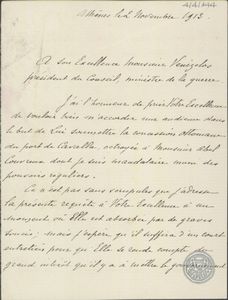 Athènes le 2 Novembre 1913.
A son Excellence Monsieur Venizelos
président du Conseil, ministre de la guerre
J'ai l'honneur de prier Votre Excellence
de vouloir bien m'accorder une audience dans
le but de Lui soumettre la concession ottomane
du port de Cavalla, octroyée à Monsieur
dont je suis mandataire muni des
pouvoirs réguliers.
Ce n'est pas sans scrupules que j'adresse
la présente requête à Votre Excellence à un
moment où Elle est absorbée par de graves
soucis; mais j'espère qu'il suffira d'un court
entretien pour que Elle se rende compte du
grand intérêt qu'il y a à mettre le gouvernement